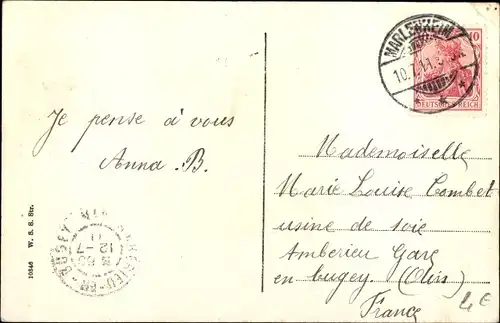 MARLENHEIM
10
DEUTSCHES REICH
Je pense à vous
Anna . B.
Mademoiselle
Marie Louise Combet
usine de soie
Amberieu Gare
en bugey. (Ain)
France
4 €
10846 W. S. S. Str.
AMBERIEU-EN-BUGEY AIN
12 - 7
11